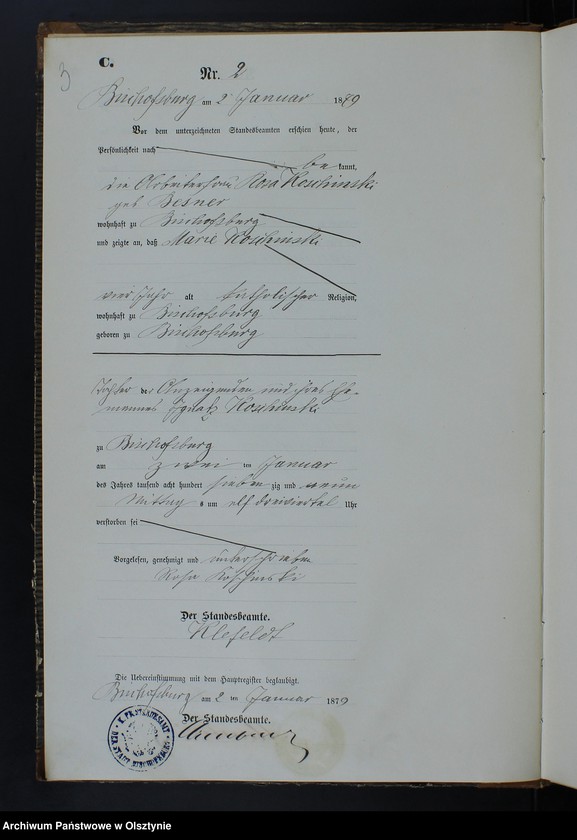 3
C.
Nr. 2
Bischofsburg am 2 Januar 1879
Vor dem unterzeichneten Standesbeamten erschien heute, der
Persönlichkeit nach
be kannt,
die Arbeiterfrau Rosa Koschinski
geb Besner
wohnhaft zu Bischofsburg
und zeigte an, daß Marie Koschinski
vier Jahr alt katholischer Religion,
wohnhaft zu Bischofsburg
geboren zu Bischofsburg
Tochter der Anzeigenden und ihres Ehe-
mannes Ignatz Koschinski
zu Bischofsburg
am zwei ten Januar
des Jahres tausend acht hundert sieben zig und neun
Mittag s um elf dreiviertel Uhr
verstorben sei
Vorgelesen, genehmigt und unterschrieben
Rosa Koschinski
Der Standesbeamte.
Klefeldt
Die Uebereinstimmung mit dem Hauptregister beglaubigt.
Bischofsburg am 2 ten Januar 1879
Der Standesbeamte.
K. PR. STANDESAMT
DER STADT BISCHOFSBURG
Archiwum Państwowe w Olsztynie